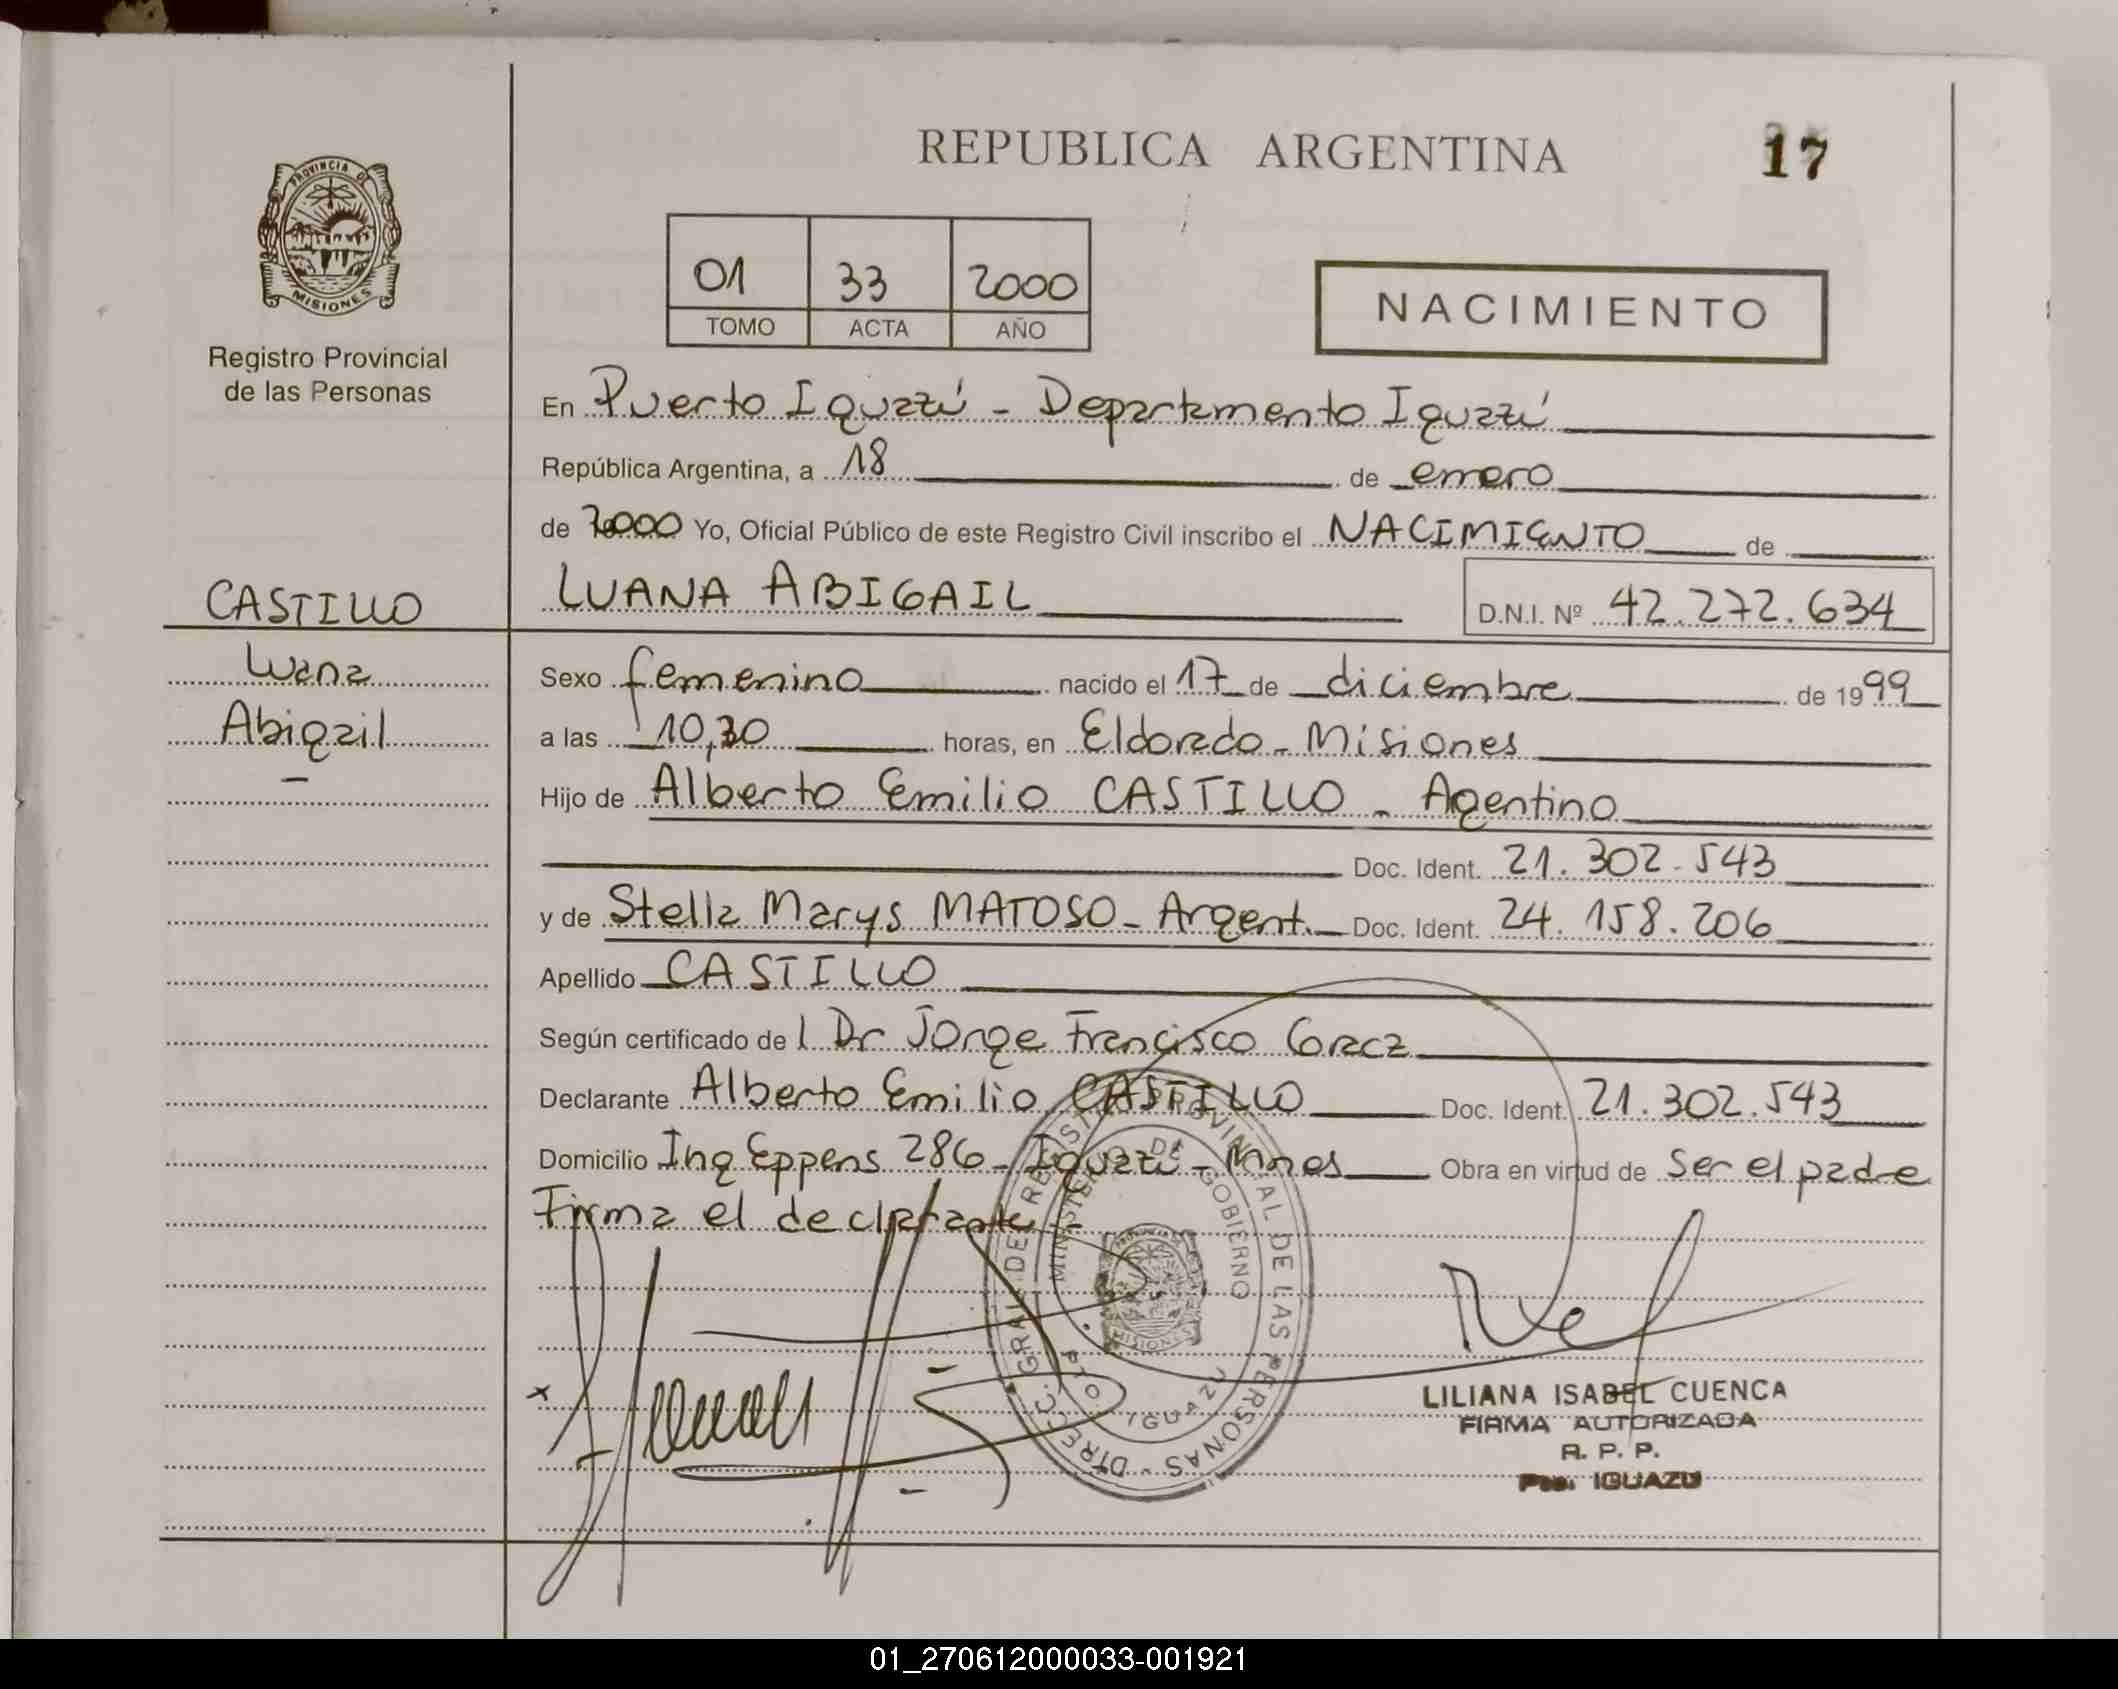 REPUBLICA ARGENTINA
17
PROVINCIA DE
MISIONES
Registro Provincial
de las Personas
01 33 2000
TOMO ACTA AÑO
NACIMIENTO
En Puerto Iguazú - Departamento Iguazú
República Argentina, a 18 de enero
de 2000 Yo, Oficial Público de este Registro Civil inscribo el NACIMIENTO de
LUANA ABIGAIL D.N.I. Nº 42.272.634
CASTILLO
Luana
Abigail
-
Sexo femenino nacido el 17 de diciembre de 1999
a las 10,30 horas, en Eldorado - Misiones
Hijo de Alberto Emilio CASTILLO - Agentino
Doc. Ident. 21.302.543
y de Stella Marys MATOSO - Argent. Doc. Ident. 24.158.206
Apellido CASTILLO
Según certificado de l Dr Jorge Francisco
Declarante Alberto Emilio CASTILLO Doc. Ident. 21.302.543
Domicilio Ing Eppens 286 - Iguazú - Mnes Obra en virtud de Ser el padre
Firma el declarante -
DIRECC. GRAL. DEL REGISTRO PROVINCIAL DE LAS PERSONAS
MINISTERIO DE GOBIERNO
PTO. IGUAZU
LILIANA ISABEL CUENCA
FIRMA AUTORIZADA
R. P. P.
Pto. IGUAZU
01_270612000033-001921